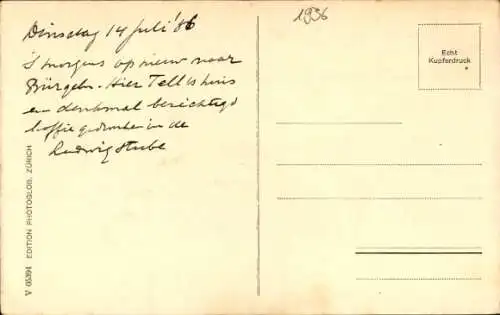 Dinsdag 14 Juli '36
's morgens op nieuw naar
Bürgeln. Hier Tell's huis
en denkmal bezichtigd
koffie gedronken in de
Ludwig Stube
1936
Echt
Kupferdruck
V 05394 EDITION PHOTOGLOB, ZÜRICH